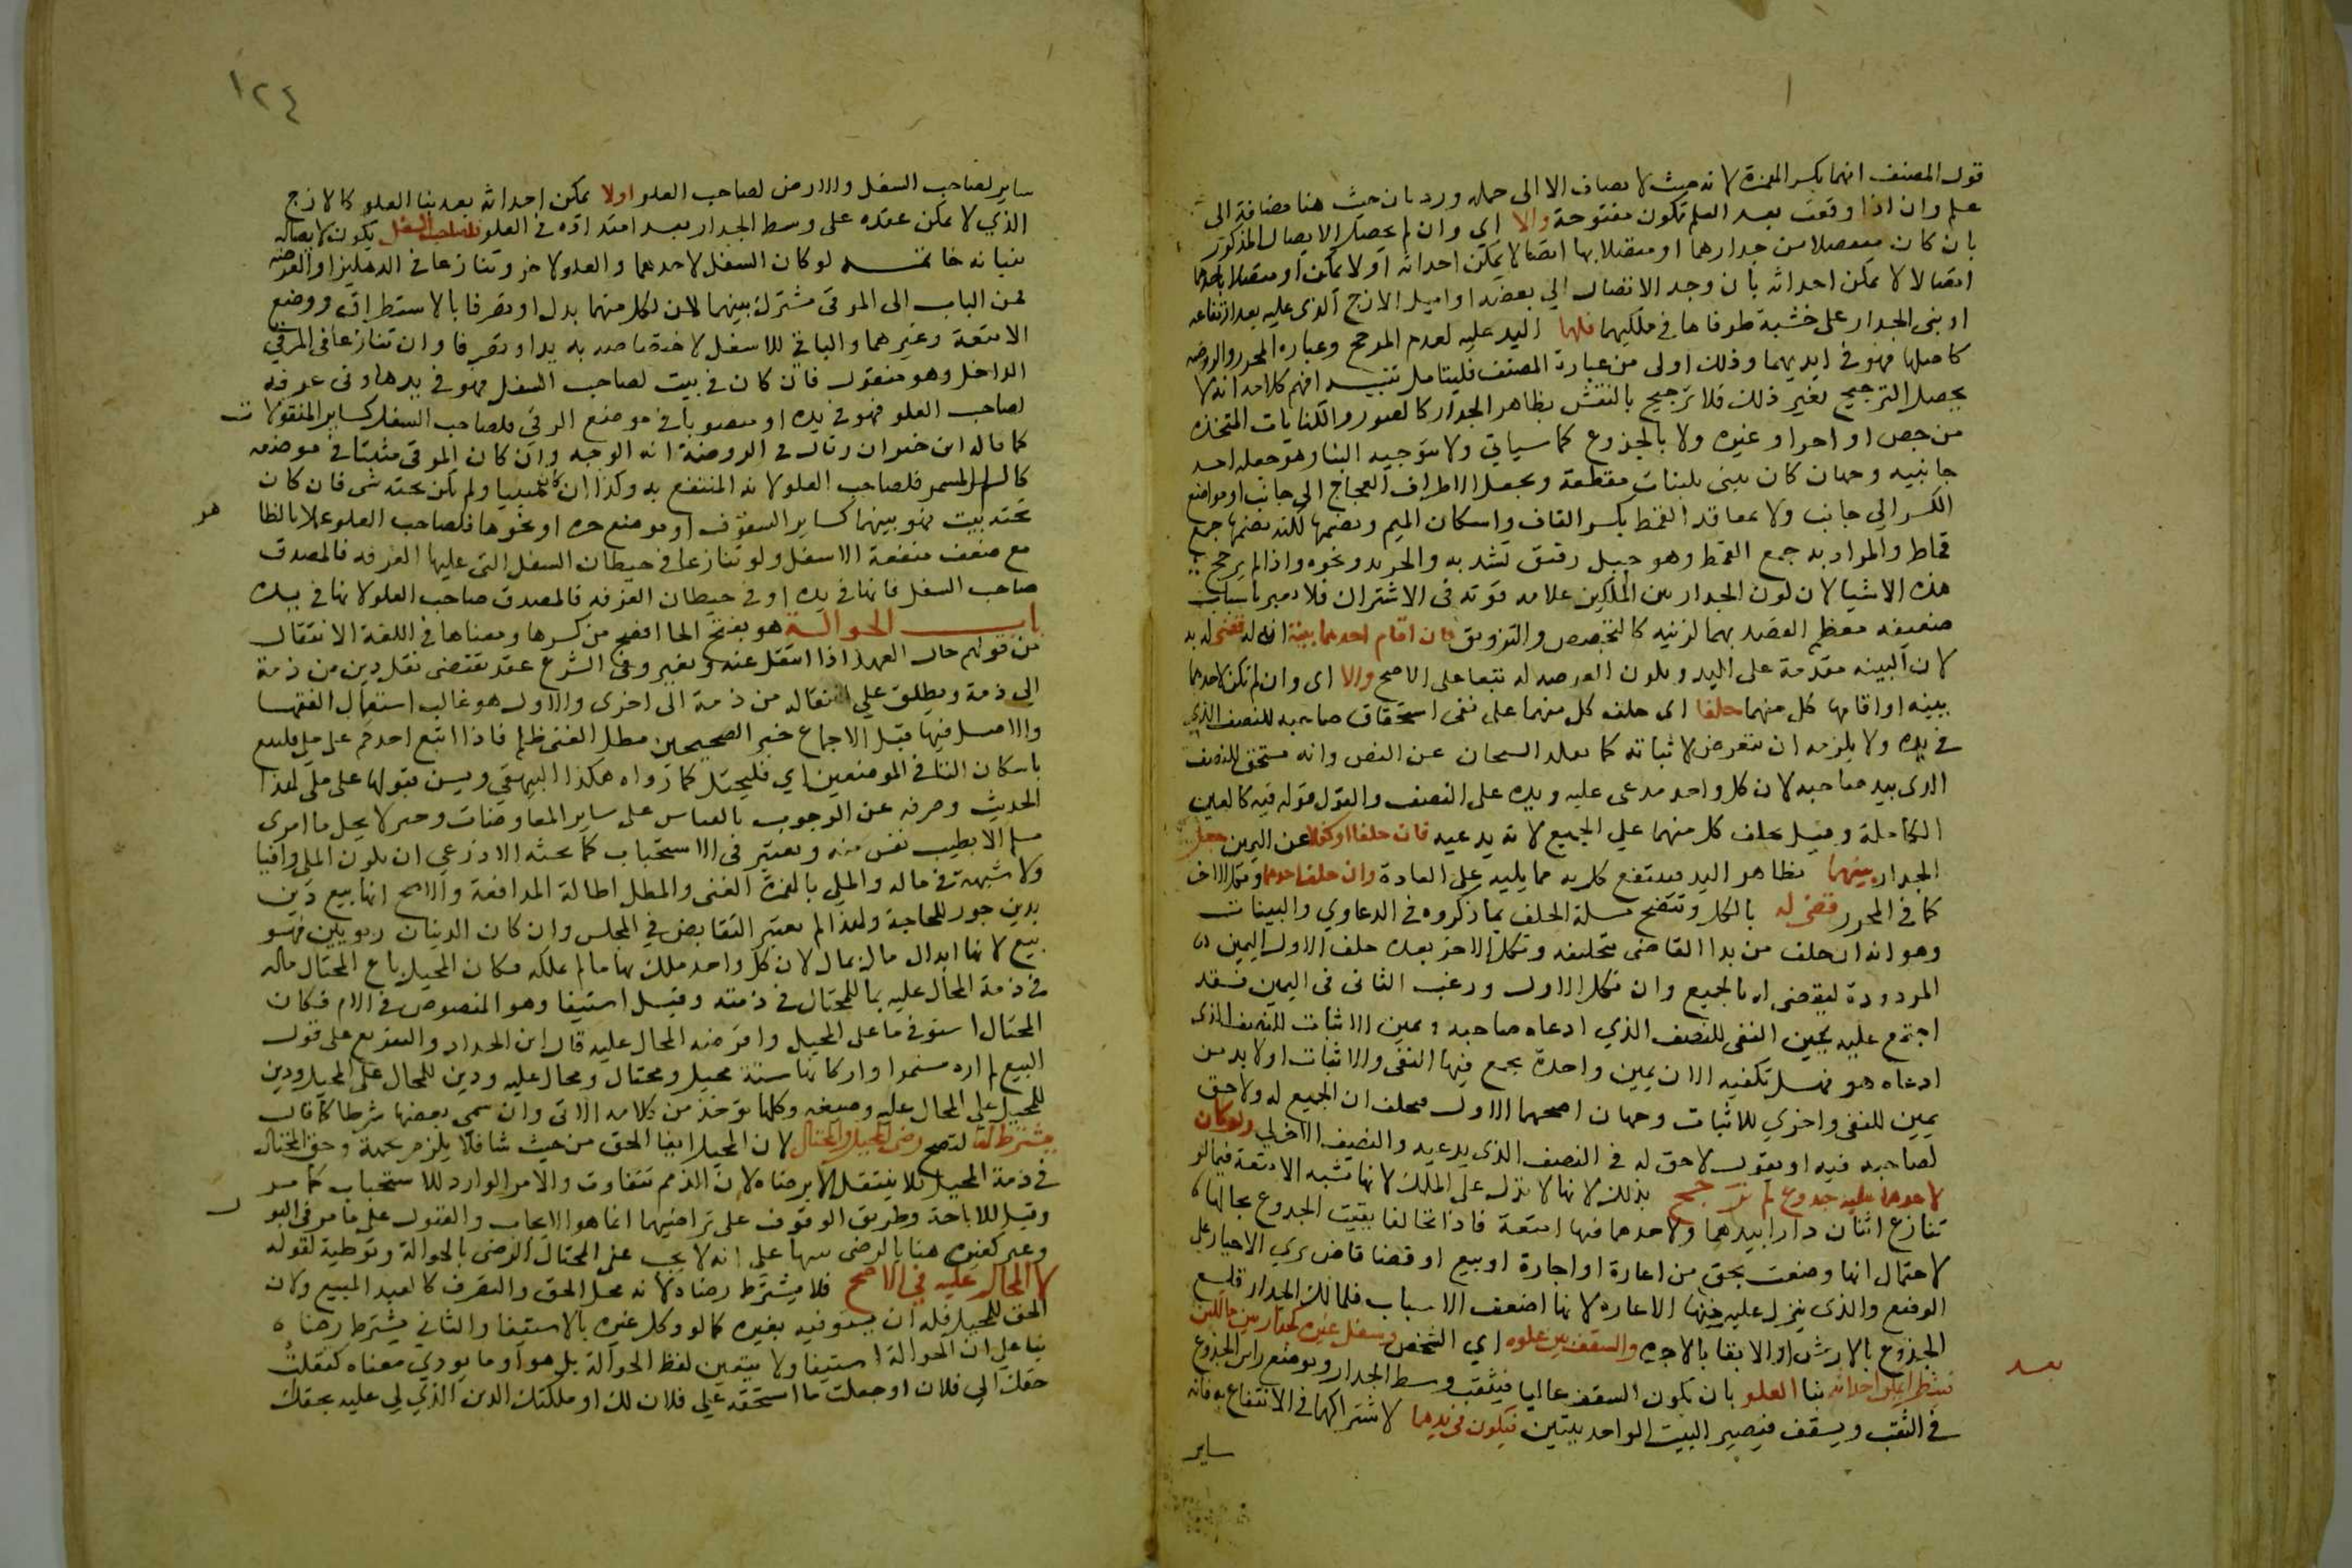 قول المصنف انهما بكسر الهمزة لانه حيث لا يضاف الا الى جملة ورد بان حيث هنا مضافة الى
علم وان اذا وقعت بعد العلم تكون مفتوحة والا اي وان لم يحصل الاتصال المذكور
بان كان منفصلا من جدارهما او متصلا بها اتصالا يمكن احداثه او لا يمكن او متصلا باحدهما
اتصالا لا يمكن احداثه بان وجد الاتصال في بعضه او اميل الازج الذي عليه بعد ارتفاعه
او بنى الجدار على خشبة طرفاها في ملكيهما فلهما اليد عليه لعدم المرجح وعبارة المحرر والروضة
كاصلها فهو في ايديهما وذلك اولى من عبارة المصنف فليتامل تنبيه افهم كلامه انه لا
يحصل الترجيح بغير ذلك فلا ترجيح بالنقش بظاهر الجدار كالصور والكتابات المتخذة
من جص او اجر او غيره ولا بالجذوع كما سياتي ولا بتوجيه البنا وهو جعل احد
جانبيه وجها كان يبنى بلبنات مقطعة ويجعل الاطراف الصحاح الى جانب ومواضع
الكسر الى جانب ولا بمعاقد القمط بكسر القاف واسكان الميم وبضمها لكنه بضمها جمع
قماط والمراد به جمع القمط وهو حبل رقيق تشد به والجريد ونحوه واذا لم يرجح
هذه الاشيا لان كون الجدار بين الملكين علامة قوته في الاشتراك فلا يغير باسباب
ضعيفة معظم القصد بهما لزينة كالتجصيص والتزويق فان اقام احدهما بينة انه له قضى له به
لان البينة مقدمة على اليد وتكون العرصة له تبعا على الاصح والا اي وان لم تكن لاحدهما
بينة او اقامها كل منهما حلفا اي حلف كل منهما على نفي استحقاق صاحبه للنصف الذي
في يده ولا يلزمه ان يتعرض لاثباته كما نقله الشيخان عن النص وانه مستحق للنصف
الذي بيد صاحبه لان كل واحد مدعى عليه ويده على النصف والقول قوله فيه كالعين
الكاملة وقيل يحلف كل منهما على الجميع لانه يدعيه فان حلفا او نكلا عن اليمين جعل
الجدار بينهما بظاهر اليد فينتفع كل به مما يليه على العادة وان حلف احدهما ونكل الاخر
كما في المحرر قضى له بالكل وتتضح مسئلة الحلف بما ذكروه في الدعاوي والبينات
وهو انه ان حلف من بدا القاضي بتحليفه ونكل الاخر بعده حلف الاول اليمين
المردودة ليقضى له بالجميع وان نكل الاول ورغب الثاني في اليمين فقد
اجتمع عليه يمين النفي للنصف الذي ادعاه صاحبه ويمين الاثبات للنصف الذي
ادعاه هو فهل تكفيه الان يمين واحدة يجمع فيها النفي والاثبات او لا بد من
يمين للنفي واخرى للاثبات وجهان اصحهما الاول فيحلف ان الجميع له ولا حق
لصاحبه فيه او يقول لا حق له في النصف الذي يدعيه والنصف الاخر لي ولو كان
لاحدهما عليه جذوع لم يرجح بذلك لانها لا تدل على الملك لانها تشبه الامتعة فيما لو
تنازع اثنان دارا بيدهما ولاحدهما فيها امتعة فاذا تحالفا بقيت الجذوع بحالها
لاحتمال انها وضعت بحق من اعارة او اجارة او بيع او قضا قاض يرى الاجبار على
الوضع والذي ينزل عليه منها الاعارة لانها اضعف الاسباب فلمالك الجدار قلع
الجذوع بالارش او الابقا بالاجرة والسقف بين علوه اي الشخص وسفل غيره كجدار بين ملكين
فينظر ايمكن احداثه بنا العلو بان يكون السقف عاليا فيثقب وسط الجدار ويوضع راس الجذوع
بعد
في الثقب ويسقف فيصير البيت الواحد بيتين فيكون في يدهما لاشتراكهما في الانتفاع به فانه
ساير
١٢٤
ساير لصاحب السفل وارض لصاحب العلو او لا يمكن احداثه بعد بنا العلو كالازج
الذي لا يمكن عقده على وسط الجدار بعد امتداده في العلو فلصاحب السفل يكون لاتصاله
ببنيانه خاتمة لو كان السفل لاحدهما والعلو لاخر وتنازعا في الدهليز او العرصة
فمن الباب الى المرقى مشترك بينهما لان لكل منهما يدا وتصرفا بالاستطراق ووضع
الامتعة وغيرهما والباقي للاسفل لاختصاصه به يدا وتصرفا وان تنازعا في المرقى
الداخل وهو منقول فان كان في بيت لصاحب السفل فهو في يده او في غرفة
لصاحب العلو فهو في يده او منصوبا في موضع الرقي فلصاحب السفل كساير المنقولات
كما قاله ابن خيران وقال في الروضة انه الوجه وان كان المرقى مثبتا في موضعه
كالسلم المسمر فلصاحب العلو لانه المنتفع به وكذا ان كان مبنيا ولم يكن تحته شي فان كان
تحته بيت فهو بينهما كساير السقوف او موضع جرة او نحوها فلصاحب العلو عملا بالظاهر
مع ضعف منفعة الاسفل ولو تنازعا في حيطان السفل التي عليها الغرفة فالمصدق
صاحب السفل فانها في يده او في حيطان الغرفة فالمصدق صاحب العلو لانها في يده
باب الحوالة هو بفتح الحا افصح من كسرها ومعناها في اللغة الانتقال
من قولهم حال العهد اذا انتقل عنه وتغير وفي الشرع عقد يقتضي نقل دين من ذمة
الى ذمة ويطلق على انتقاله من ذمة الى اخرى والاول هو غالب استعمال الفقها
والاصل فيها قبل الاجماع خبر الصحيحين مطل الغني ظلم فاذا اتبع احدكم على ملي فليتبع
باسكان التا في الموضعين اي فليحتل كما رواه هكذا البيهقي ويسن قبولها على ملي لهذا
الحديث وصرفه عن الوجوب بالقياس على ساير المعاوضات وخبر لا يحل مال امرئ
مسلم الا بطيب نفس منه ويعتبر في الاستحباب كما بحثه الاذرعي ان يكون الملي وافيا
ولا شبهة في ماله والملي بالهمزة الغني والمطل اطالة المدافعة والاصح انها بيع دين
بدين جوز للحاجة ولهذا لم يعتبر التقابض في المجلس وان كان الدينان ربويين فهو
بيع لانها ابدال مال بمال لان كل واحد ملك بها ما لم يملكه فكان المحيل باع المحتال ماله
في ذمة المحال عليه بما للمحتال في ذمته وقيل استيفا وهو المنصوص في الام فكان
المحتال استوفى ما على المحيل واقرضه المحال عليه قال ابن الحداد والتفريع على قول
البيع لم اره مستمرا واركانها ستة محيل ومحتال ومحال عليه ودين للمحتال على المحيل ودين
للمحيل على المحال عليه وصيغة وكلها توخذ من كلامه الاتي وان سمي بعضها شرطا كما قال
يشترط لها لتصح رضى المحيل والمحتال لان للمحيل ايفا الحق من حيث شا فلا يلزم بجهة وحق المحتال
في ذمة المحيل فلا ينتقل الا برضاه لان الذمم تتفاوت والامر الوارد للاستحباب كما مر
وقيل للاباحة وطريق الوقوف على تراضيهما انما هو الايجاب والقبول على ما مر في البيع
وعبر كغيره هنا بالرضى تنبيها على انه لا يجب على المحتال الرضى بالحوالة وتوطية لقوله
لا المحال عليه في الاصح فلا يشترط رضاه لانه محل الحق والتصرف كالعبد المبيع ولان
الحق للمحيل فله ان يستوفيه بغيره كما لو وكل غيره بالاستيفا والثاني يشترط رضاه
بنا على ان الحوالة استيفا ولا يتعين لفظ الحوالة بل هو او ما يودي معناه كنقلت
حقك الى فلان او جعلت ما استحقه على فلان لك او ملكتك الدين الذي لي عليه بحقك